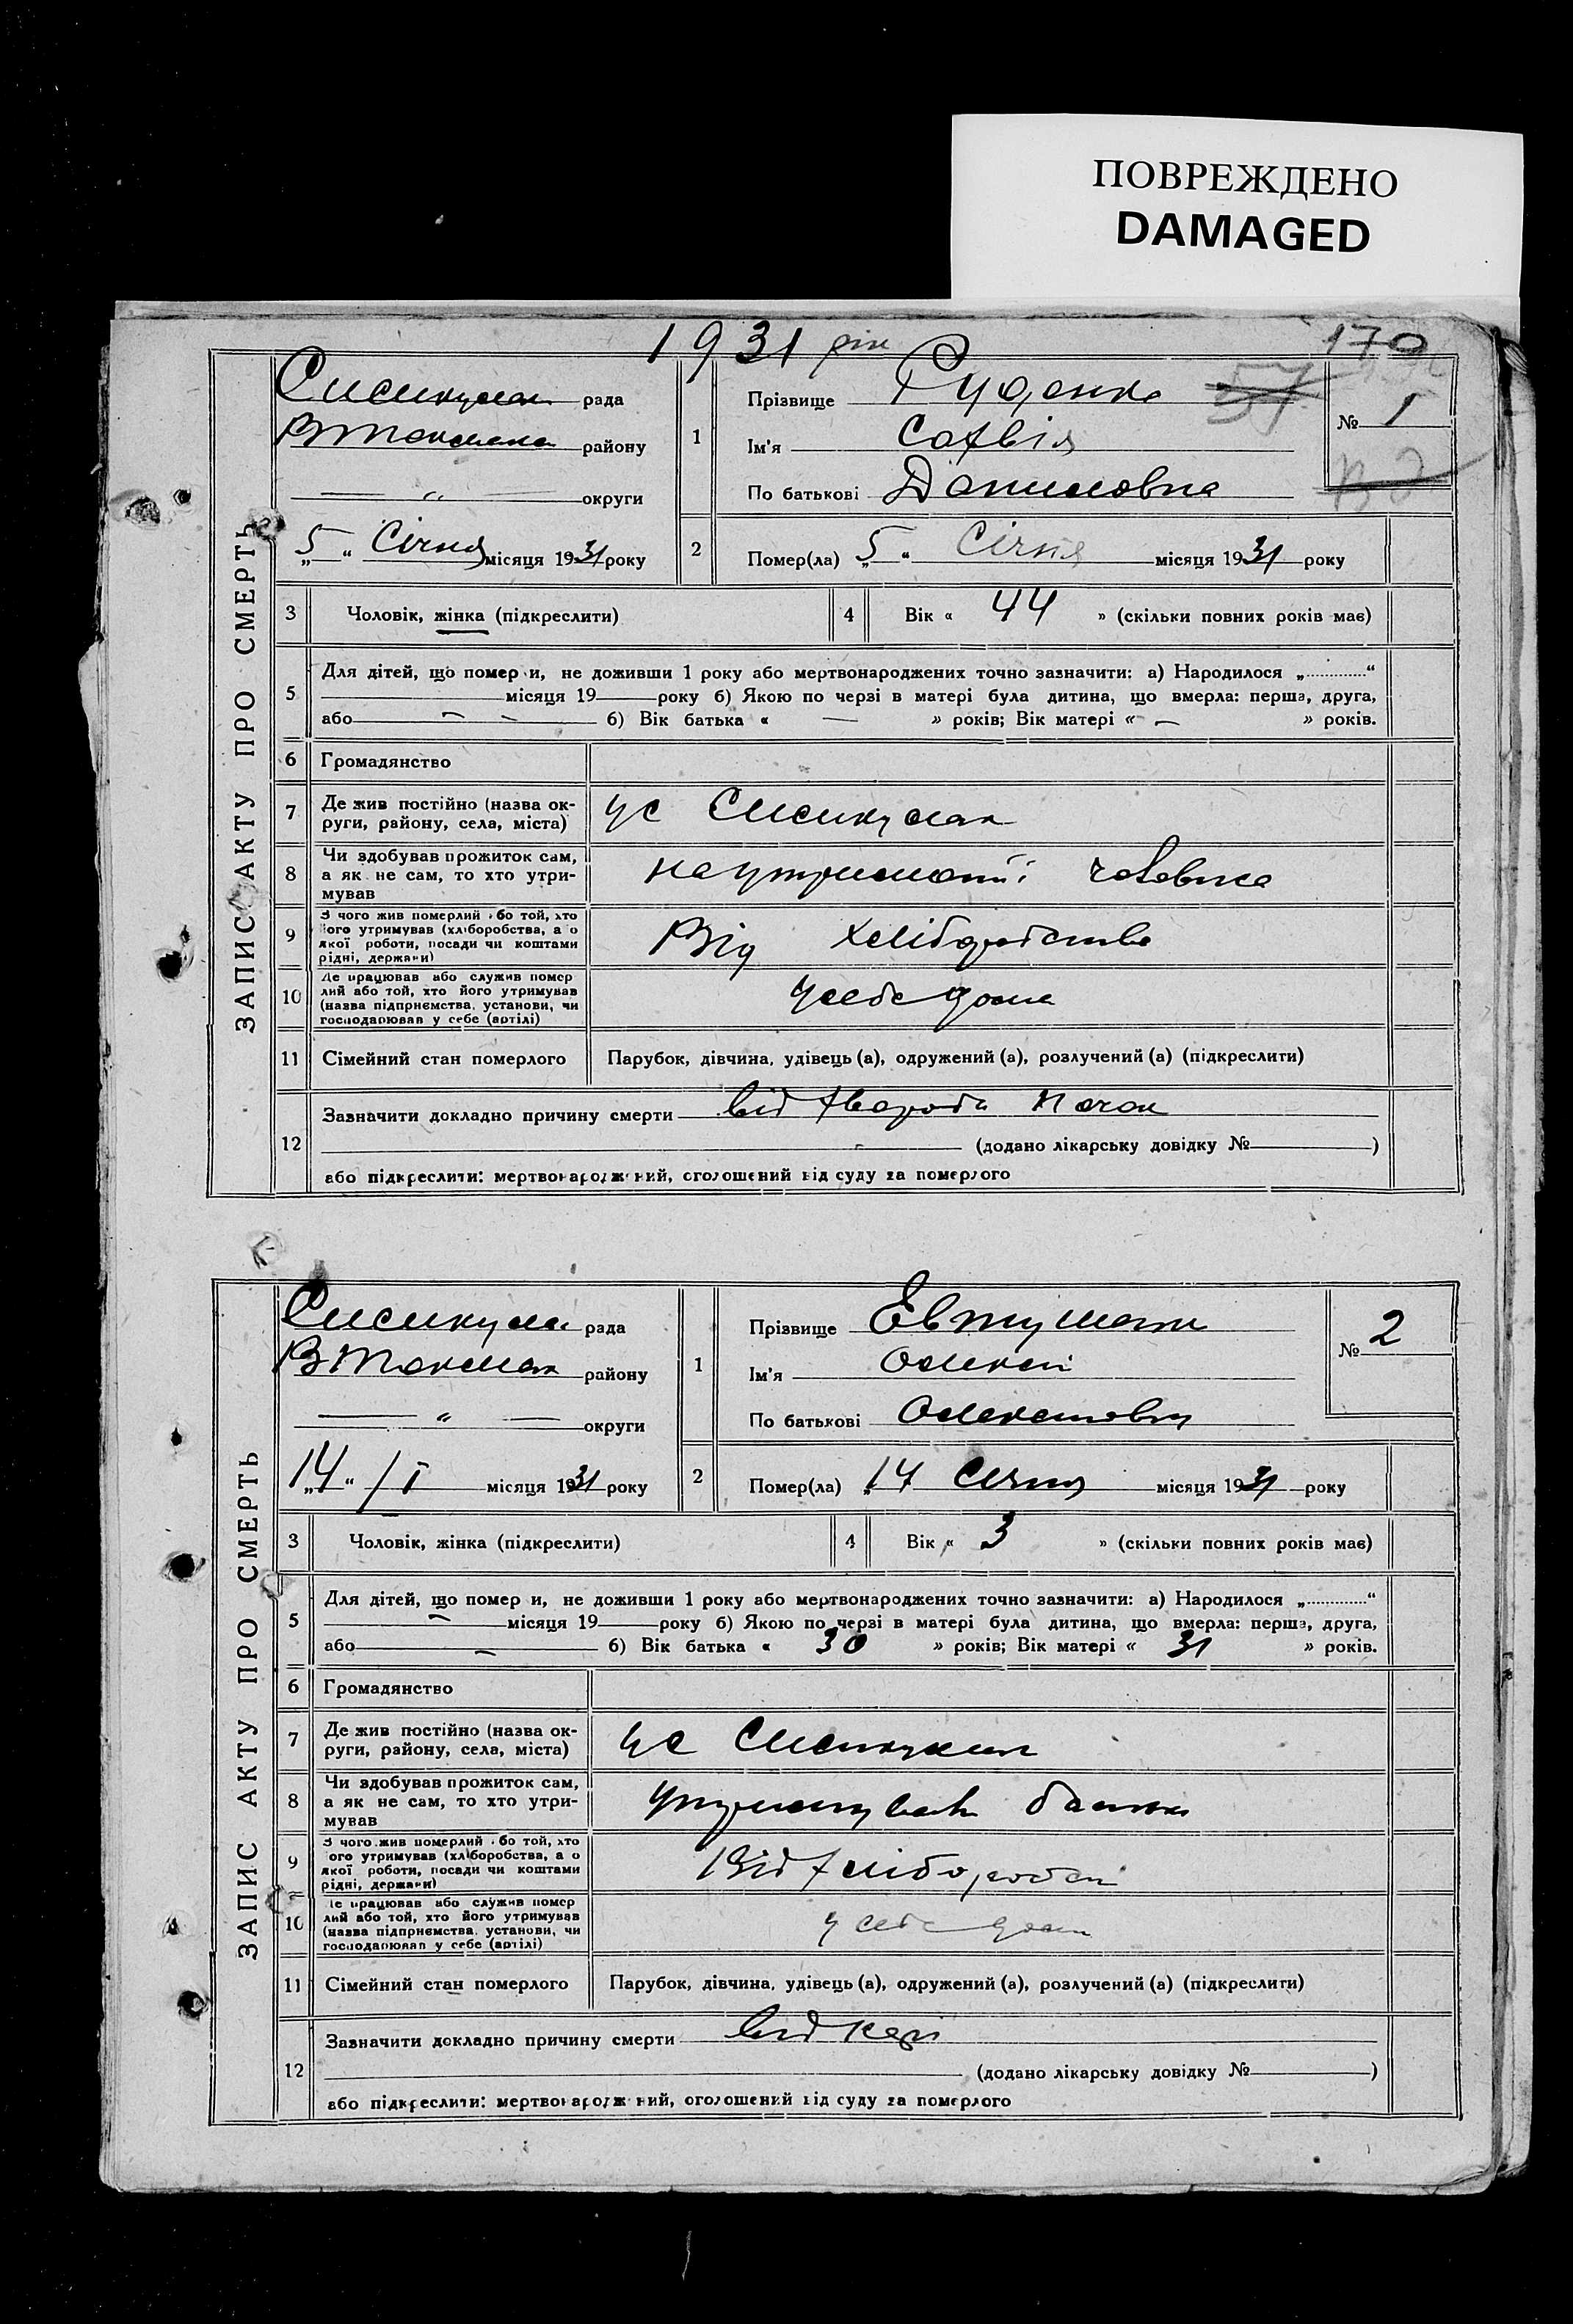 ПОВРЕЖДЕНО
DAMAGED
1931 рік
170
ЗАПИС АКТУ ПРО СМЕРТЬ
рада
району
— „ — округи
„5“ Січня місяця 1931 року
1
Прізвище Руденко
57
Ім'я Софвія
По батькові Даниловна
№ 1
2
Помер(ла) „5“ Січня місяця 1931 року
3 Чоловік, жінка (підкреслити)
4 Вік « 44 » (скільки повних років має)
5
Для дітей, що помер и, не доживши 1 року або мертвонароджених точно зазначити: а) Народилося „............“
місяця 19 року б) Якою по черзі в матері була дитина, що вмерла: перша, друга,
або — — б) Вік батька « — » років; Вік матері « — » років.
6 Громадянство
7
Де жив постійно (назва ок-
руги, району, села, міста)
ус
8
Чи здобував прожиток сам,
а як не сам, то хто утри-
мував
наутриманні чоловіка
9
З чого жив померлий або той, хто
його утримував (хліборобства, а о
якої роботи, посади чи коштами
рідні, держави)
Від хліборобства
10
Де працював або служив помер
лий або той, хто його утримував
(назва підприємства, установи, чи
господарював у себе (артілі)
усебе дома
11 Сімейний стан померлого
Парубок, дівчина, удівець (а), одружений (а), розлучений (а) (підкреслити)
12
Зазначити докладно причину смерти від хвороби почок
(додано лікарську довідку № )
або підкреслити: мертвонароджений, оголошений від суду за померлого
ЗАПИС АКТУ ПРО СМЕРТЬ
рада
В Токмак району
— „ — округи
„14“ / I місяця 1931 року
1
Прізвище Евтушенко
Ім'я Олексій
По батькові Олексієвич
№ 2
2
Помер(ла) „14 Січня місяця 1931 року
3 Чоловік, жінка (підкреслити)
4 Вік « 3 » (скільки повних років має)
5
Для дітей, що помер и, не доживши 1 року або мертвонароджених точно зазначити: а) Народилося „............“
— місяця 19 року б) Якою по черзі в матері була дитина, що вмерла: перша, друга,
або — б) Вік батька « 30 » років; Вік матері « 31 » років.
6 Громадянство
7
Де жив постійно (назва ок-
руги, району, села, міста)
ус
8
Чи здобував прожиток сам,
а як не сам, то хто утри-
мував
утримував батько
9
З чого жив померлий або той, хто
його утримував (хліборобства, а о
якої роботи, посади чи коштами
рідні, держави)
Від хліборобства
10
Де працював або служив помер
лий або той, хто його утримував
(назва підприємства, установи, чи
господарював у себе (артілі)
у себе дома
11 Сімейний стан померлого
Парубок, дівчина, удівець (а), одружений (а), розлучений (а) (підкреслити)
12
Зазначити докладно причину смерти від корі
(додано лікарську довідку № )
або підкреслити: мертвонароджений, оголошений від суду за померлого